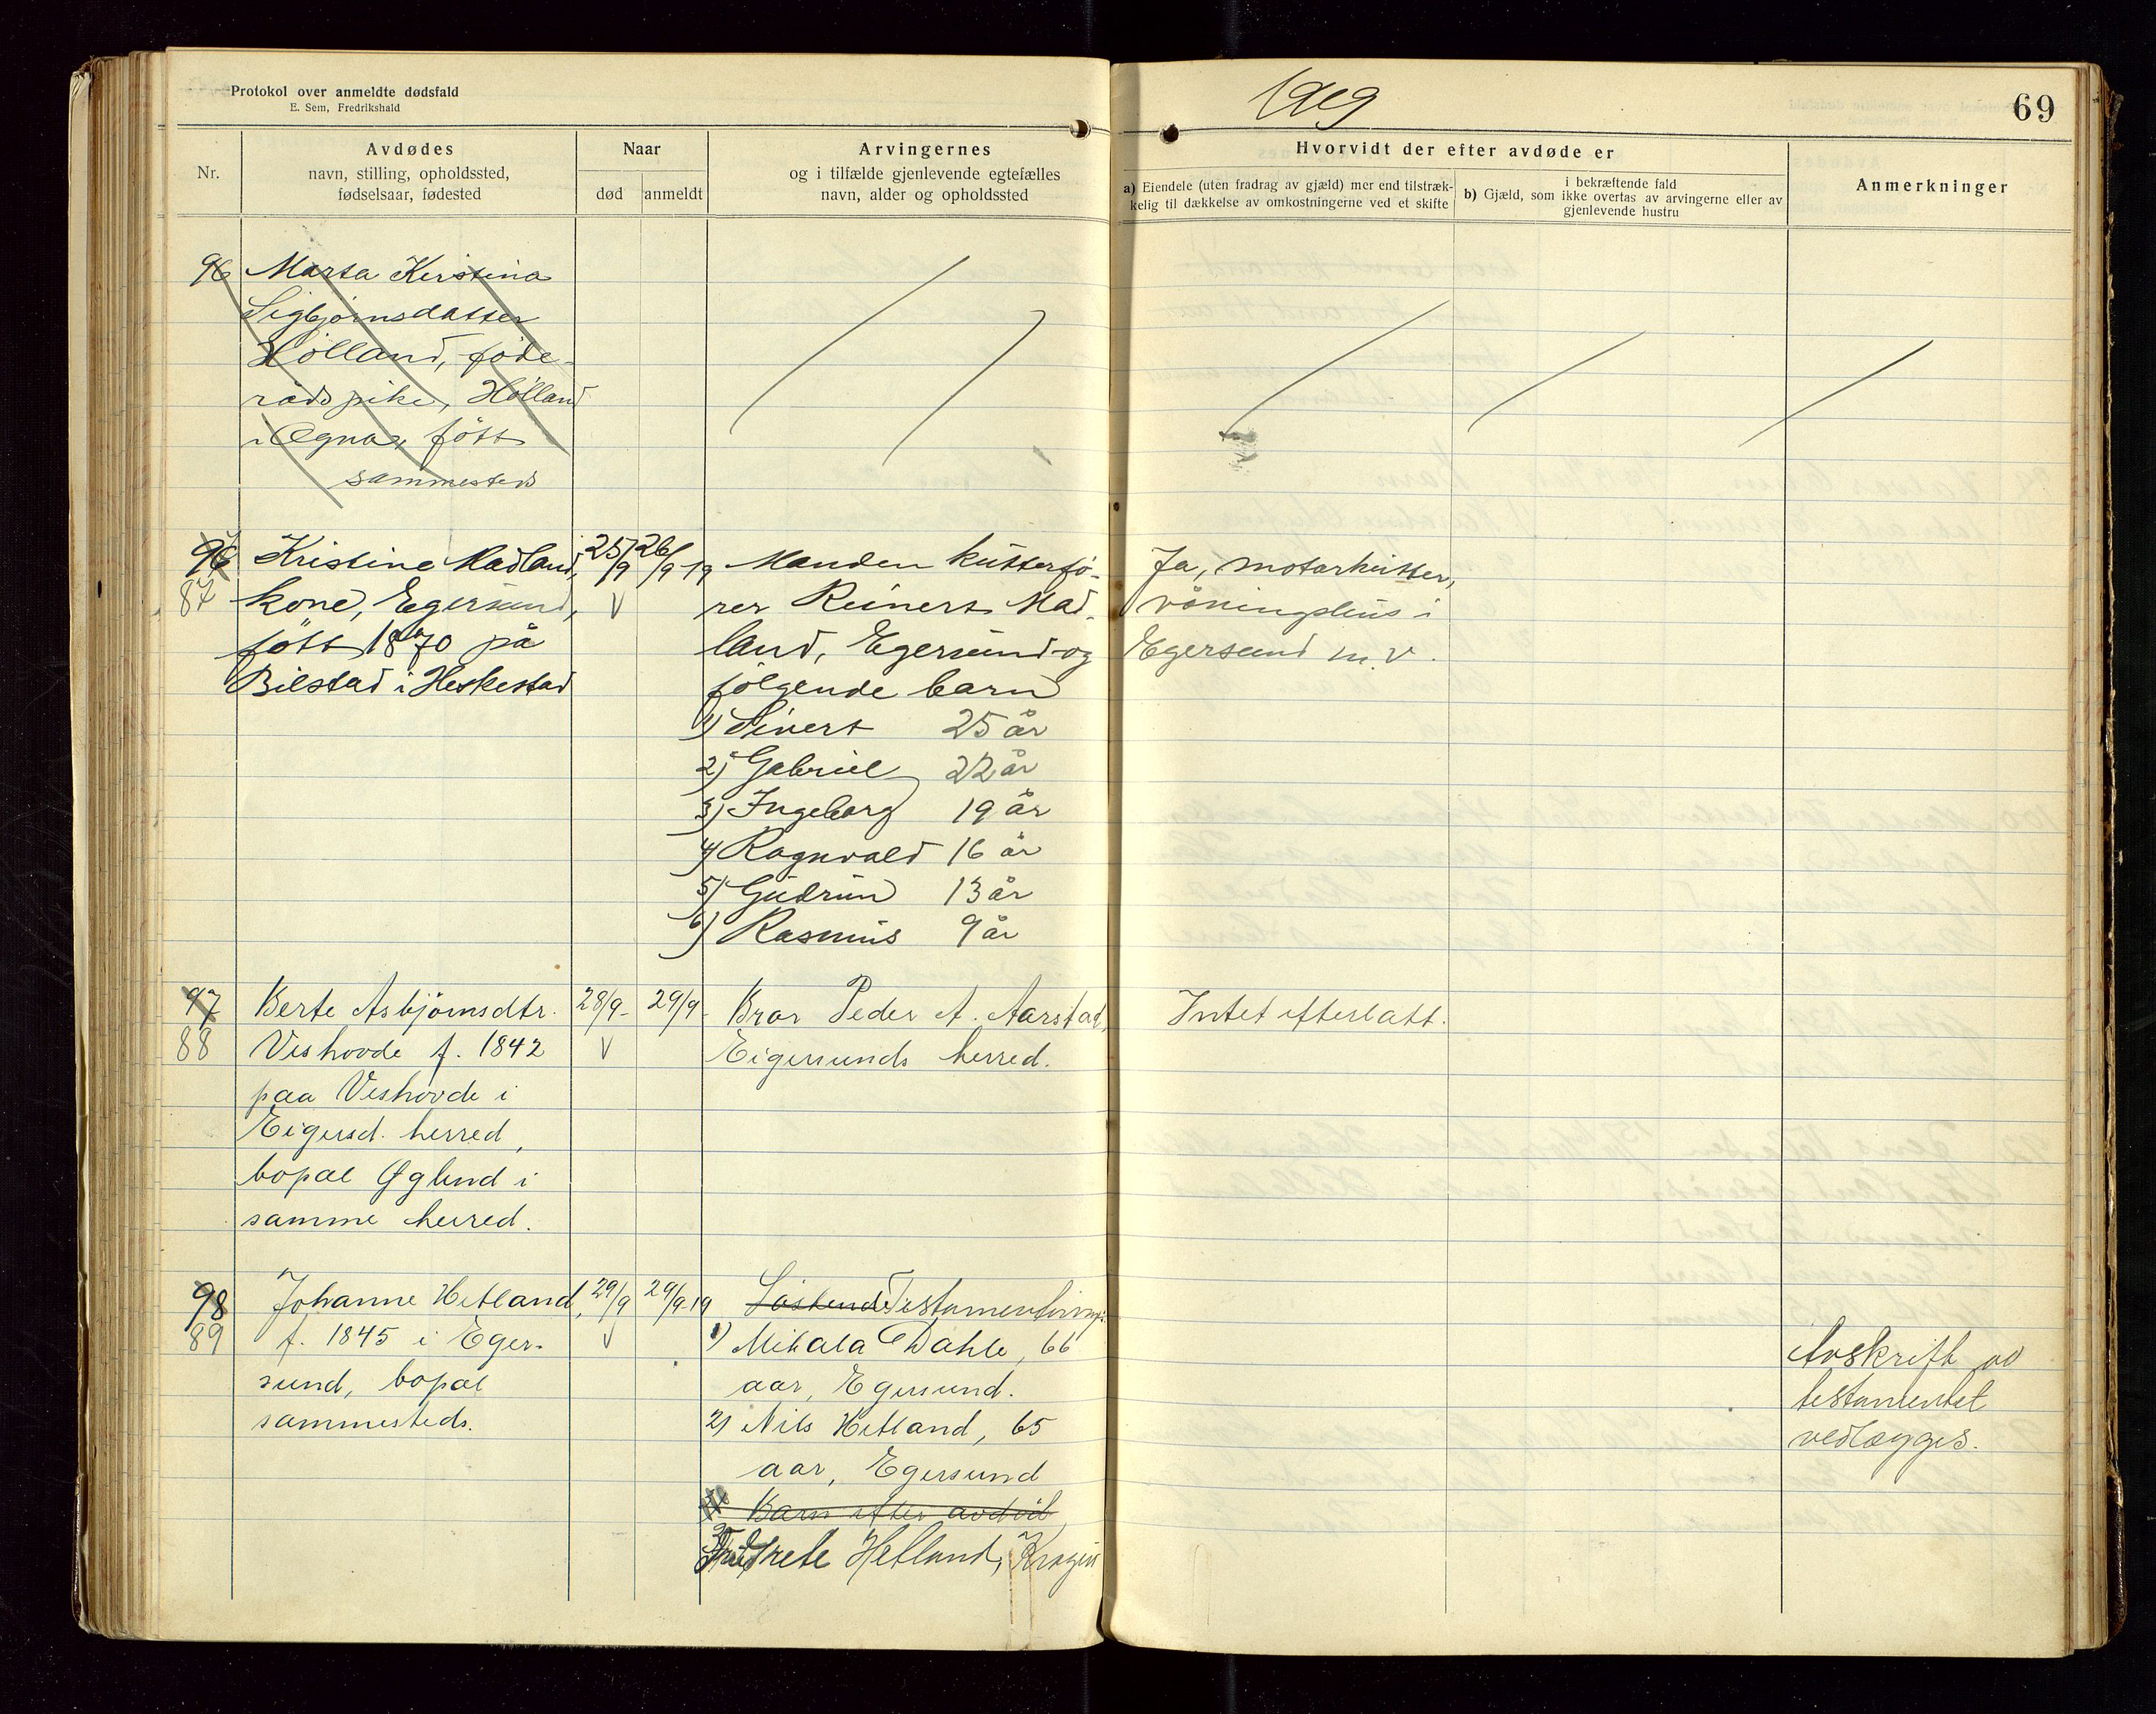 Protokol over anmeldte dødsfald
E. Sem, Fredrikshald
1919
69
Nr.
Avdødes
navn, stilling, opholdssted,
fødselsaar, fødested
Naar
død
anmeldt
Arvingernes
og i tilfælde gjenlevende egtefælles
navn, alder og opholdssted
Hvorvidt der efter avdøde er
a) Eiendele (uten fradrag av gjæld) mer end tilstræk-
kelig til dækkelse av omkostningerne ved et skifte
i bekræftende fald
b) Gjæld, som ikke overtas av arvingerne eller av
gjenlevende hustru
Anmerkninger
96 Marta Kristina
Sigbjørnsdatter
Hölland, føde-
rådspike, Hölland
i Ogna, født
sammesteds
96
87
Kristine Madland,
kone, Egersund,
født 1870 på
Bilstad i Heskestad
25/9
26/9-19
V
Manden kutterfø-
rer Reinert Mad-
land, Egersund og
følgende barn
1) Sivert 25 år
2) Gabriel 22 år
3) Ingeborg 19 år
4) Ragnvald 16 år
5) Gudrun 13 år
6) Rasmus 9 år
Ja, motorkutter,
våningshus i
Egersund m.v.
97
88
Berte Asbjörnsdtr.
Veshovde f. 1842
paa Veshovde i
Eigersd. herred,
bopæl Øglend i
samme herred.
28/9-
29/9-
V
Bror Peder A. Aarstad,
Eigersunds herred.
Intet efterlatt.
98
89
Johanne Hetland,
f. 1845 i Eger-
sund, bopæl
sammesteds.
29/9
29/9-19
V
Søskende
1) Mikala Dahle, 66
aar, Egersund.
2) Nils Hetland, 65
aar, Egersund
Barn efter avdød
Hetland,
Avskrift av
testamentet
vedlægges.